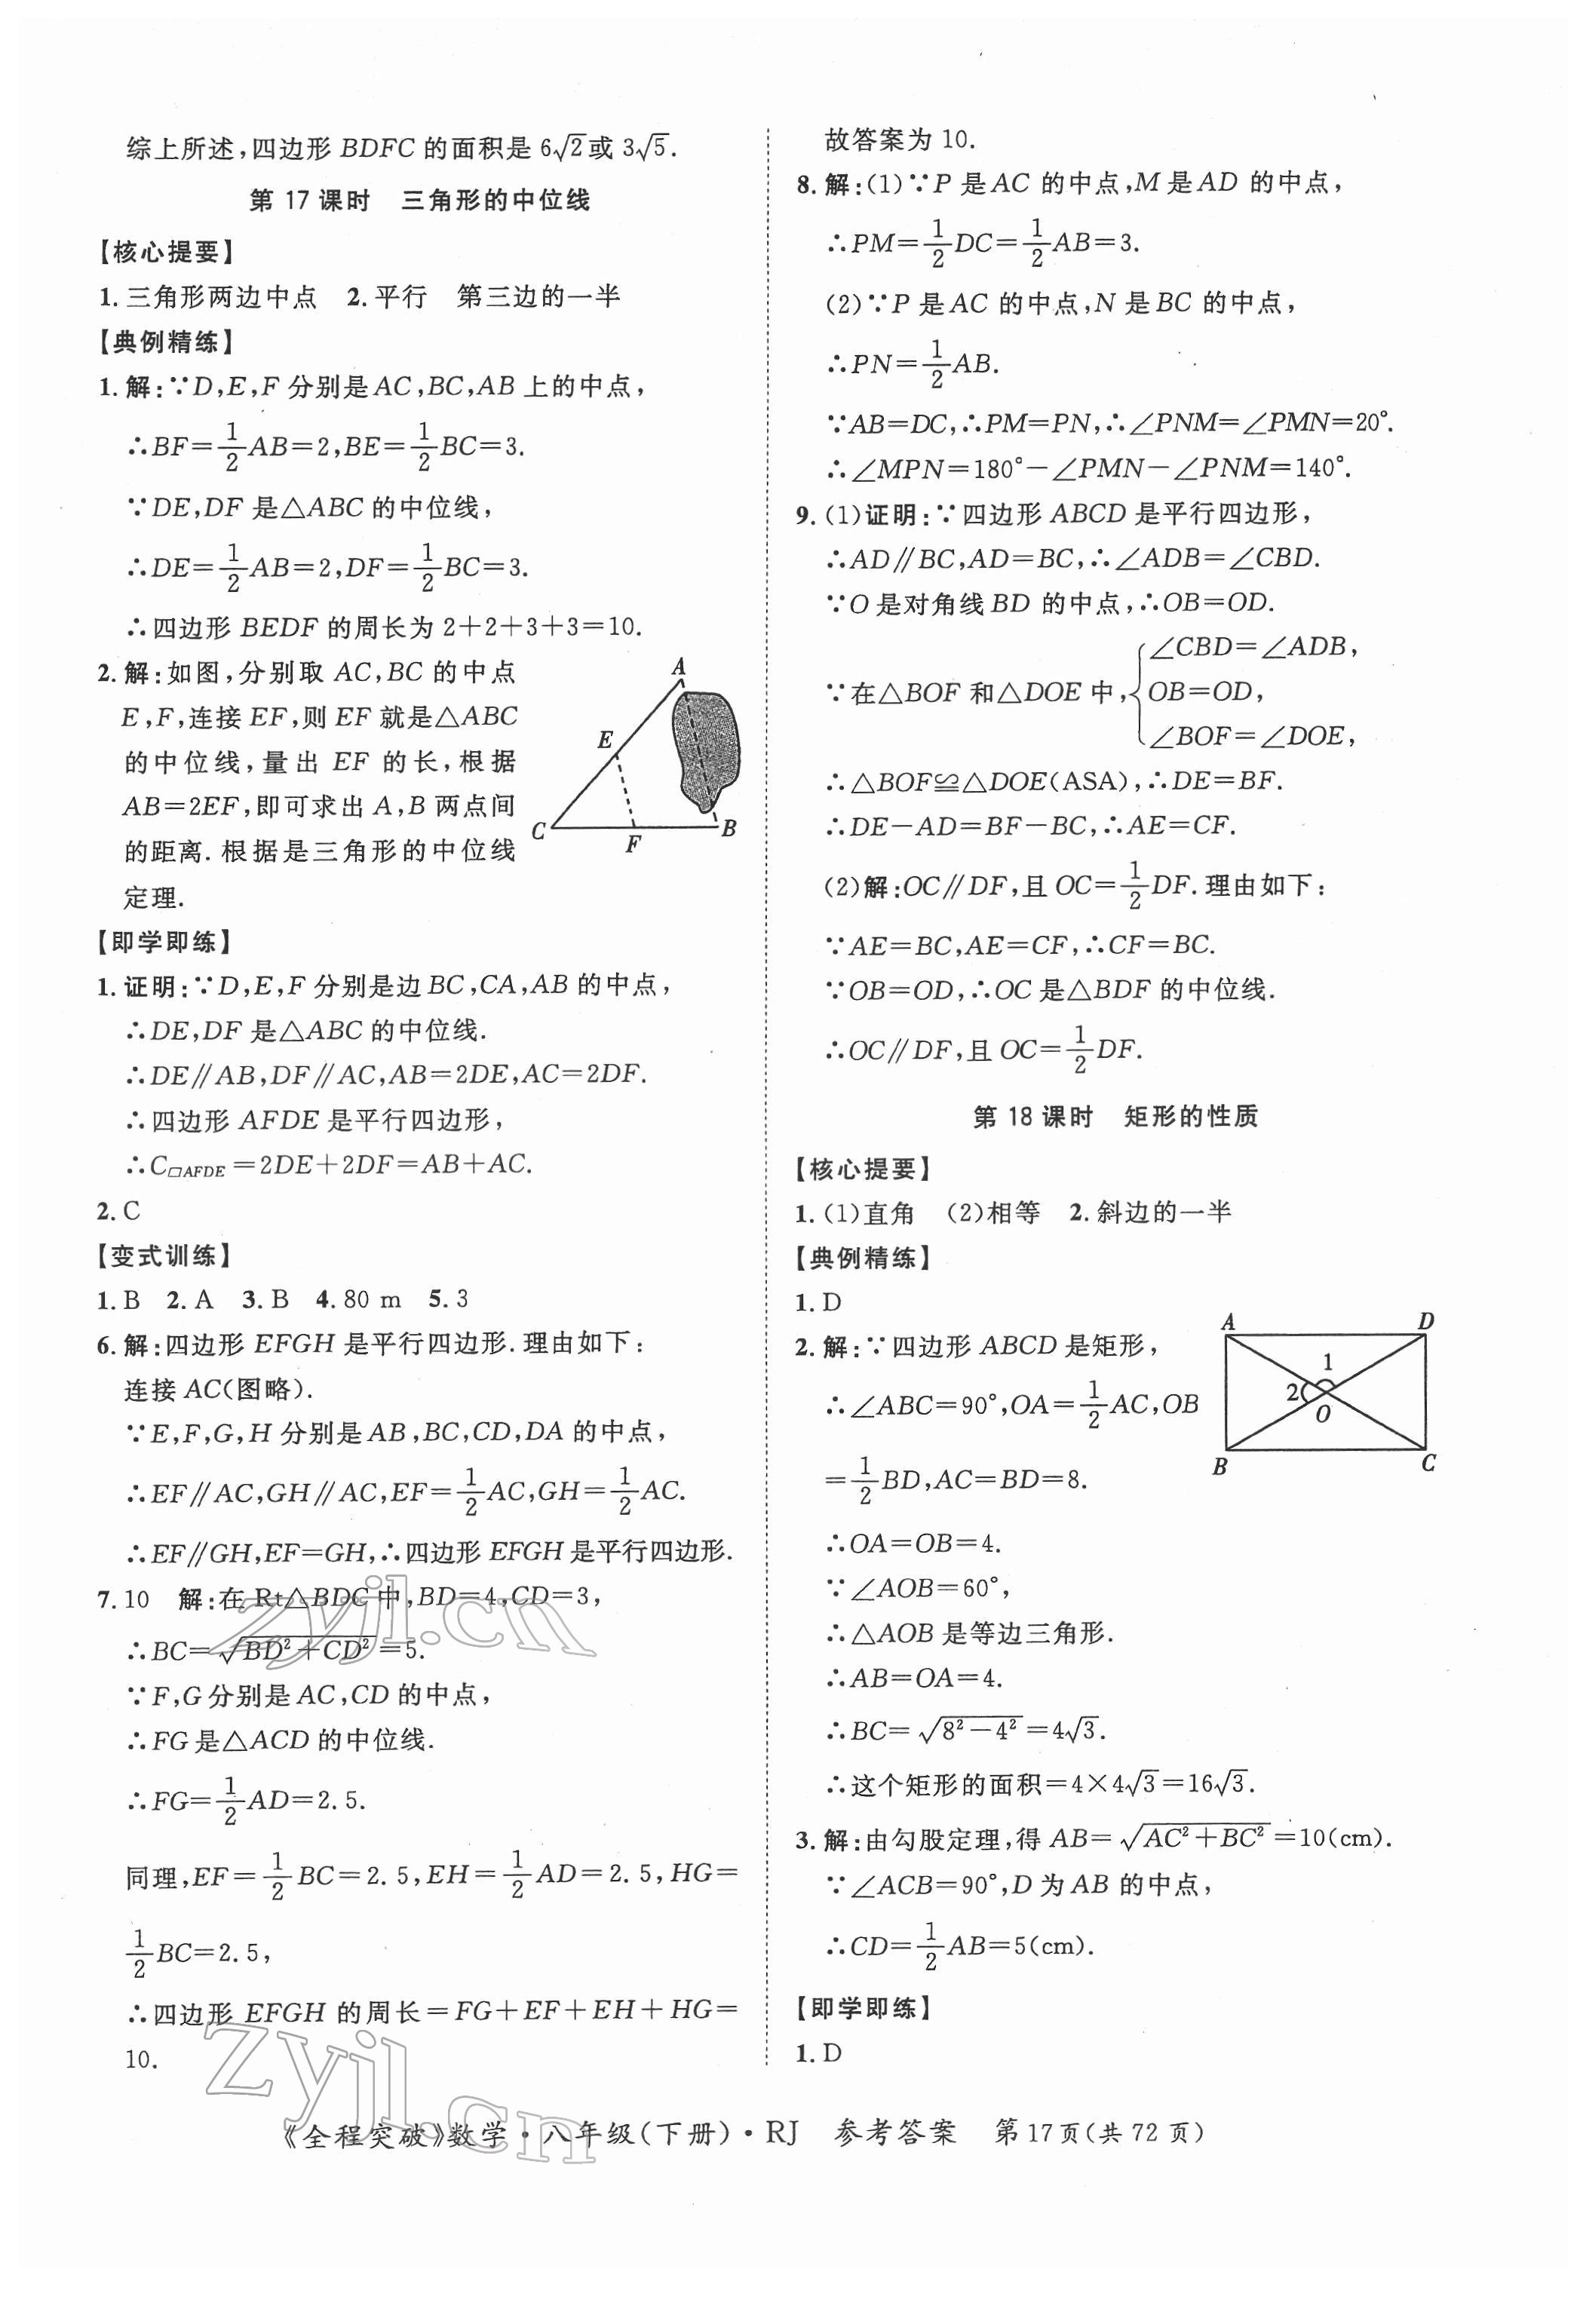 综上所述,四边形 BDFC 的面积是 6√2或 3√5.
第 17 课时 三角形的中位线
【核心提要】
1.三角形两边中点 2.平行 第三边的一半
【典例精练】
1.解:∵D,E,F 分别是 AC,BC,AB 上的中点,
∴BF=1/2AB=2,BE=1/2BC=3.
∵DE,DF 是△ABC 的中位线,
∴DE=1/2AB=2,DF=1/2BC=3.
∴四边形 BEDF 的周长为 2+2+3+3=10.
2.解:如图,分别取 AC,BC 的中点
E,F,连接 EF,则 EF 就是△ABC
的中位线,量出 EF 的长,根据
AB=2EF,即可求出 A,B 两点间
的距离.根据是三角形的中位线
定理.
A
E
C
F
B
【即学即练】
1.证明:∵D,E,F 分别是边 BC,CA,AB 的中点,
∴DE,DF 是△ABC 的中位线.
∴DE∥AB,DF∥AC,AB=2DE,AC=2DF.
∴四边形 AFDE 是平行四边形,
∴C▱AFDE=2DE+2DF=AB+AC.
2.C
【变式训练】
1.B 2.A 3.B 4.80 m 5.3
6.解:四边形 EFGH 是平行四边形.理由如下:
连接 AC(图略).
∵E,F,G,H 分别是 AB,BC,CD,DA 的中点,
∴EF∥AC,GH∥AC,EF=1/2AC,GH=1/2AC.
∴EF∥GH,EF=GH,∴四边形 EFGH 是平行四边形.
7.10 解:在 Rt△BDC 中,BD=4,CD=3,
∴BC=√(BD²+CD²)=5.
∵F,G 分别是 AC,CD 的中点,
∴FG 是△ACD 的中位线.
∴FG=1/2AD=2.5.
同理,EF=1/2BC=2.5,EH=1/2AD=2.5,HG=
1/2BC=2.5,
∴四边形 EFGH 的周长=FG+EF+EH+HG=
10.
zyjl.cn
zyjl.cn
故答案为 10.
8.解:(1)∵P 是 AC 的中点,M 是 AD 的中点,
∴PM=1/2DC=1/2AB=3.
(2)∵P 是 AC 的中点,N 是 BC 的中点,
∴PN=1/2AB.
∵AB=DC,∴PM=PN,∴∠PNM=∠PMN=20°.
∴∠MPN=180°−∠PMN−∠PNM=140°.
9.(1)证明:∵四边形 ABCD 是平行四边形,
∴AD∥BC,AD=BC,∴∠ADB=∠CBD.
∵O 是对角线 BD 的中点,∴OB=OD.
∠CBD=∠ADB,
∵在△BOF 和△DOE 中,{OB=OD,
∠BOF=∠DOE,
∴△BOF≌△DOE(ASA),∴DE=BF.
∴DE−AD=BF−BC,∴AE=CF.
(2)解:OC∥DF,且 OC=1/2DF.理由如下:
∵AE=BC,AE=CF,∴CF=BC.
∵OB=OD,∴OC 是△BDF 的中位线.
∴OC∥DF,且 OC=1/2DF.
第 18 课时 矩形的性质
【核心提要】
1.(1)直角 (2)相等 2.斜边的一半
【典例精练】
1.D
2.解:∵四边形 ABCD 是矩形,
∴∠ABC=90°,OA=1/2AC,OB
=1/2BD,AC=BD=8.
∴OA=OB=4.
∵∠AOB=60°,
∴△AOB 是等边三角形.
∴AB=OA=4.
∴BC=√(8²−4²)=4√3.
∴这个矩形的面积=4×4√3=16√3.
A
D
1
2
O
B
C
3.解:由勾股定理,得 AB=√(AC²+BC²)=10(cm).
∵∠ACB=90°,D 为 AB 的中点,
∴CD=1/2AB=5(cm).
【即学即练】
1.D
《全程突破》数学·八年级(下册)·RJ 参考答案 第 17 页(共 72 页)